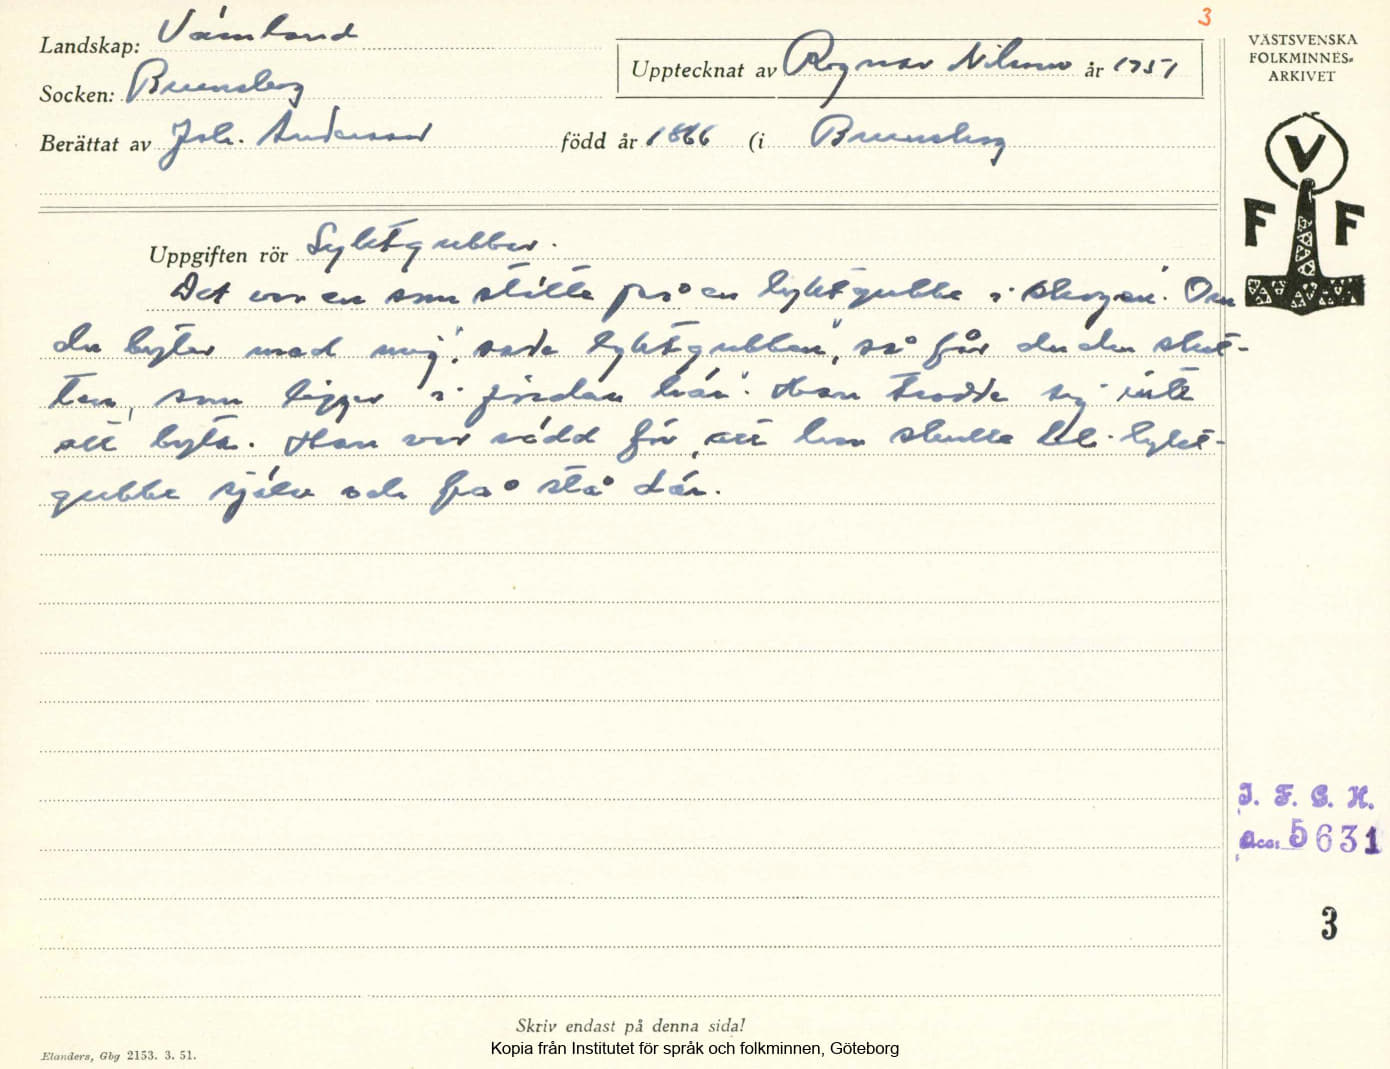 3
Landskap: Värmland
Upptecknat av Ragnar Nilsson år 1951
VÄSTSVENSKA
FOLKMINNES-
ARKIVET
Socken: Brunskog
Berättat av Joh. Andersson född år 1866 (i Brunskog
V
F F
Uppgiften rör Lyktgubbar.
Det var en som stötte på en lyktgubbe i skogen. Om
du byter med mig", sade lyktgubben", så får du den skat-
ten, som ligger i jorden här". Han trodde sig inte
att byta. Han var rädd för, att han skulle bli lykt-
gubbe själv och få stå där.
I. F. G. H.
Acc: 5631
3
Skriv endast på denna sida!
Elanders, Gbg 2153. 3. 51.
Kopia från Institutet för språk och folkminnen, Göteborg